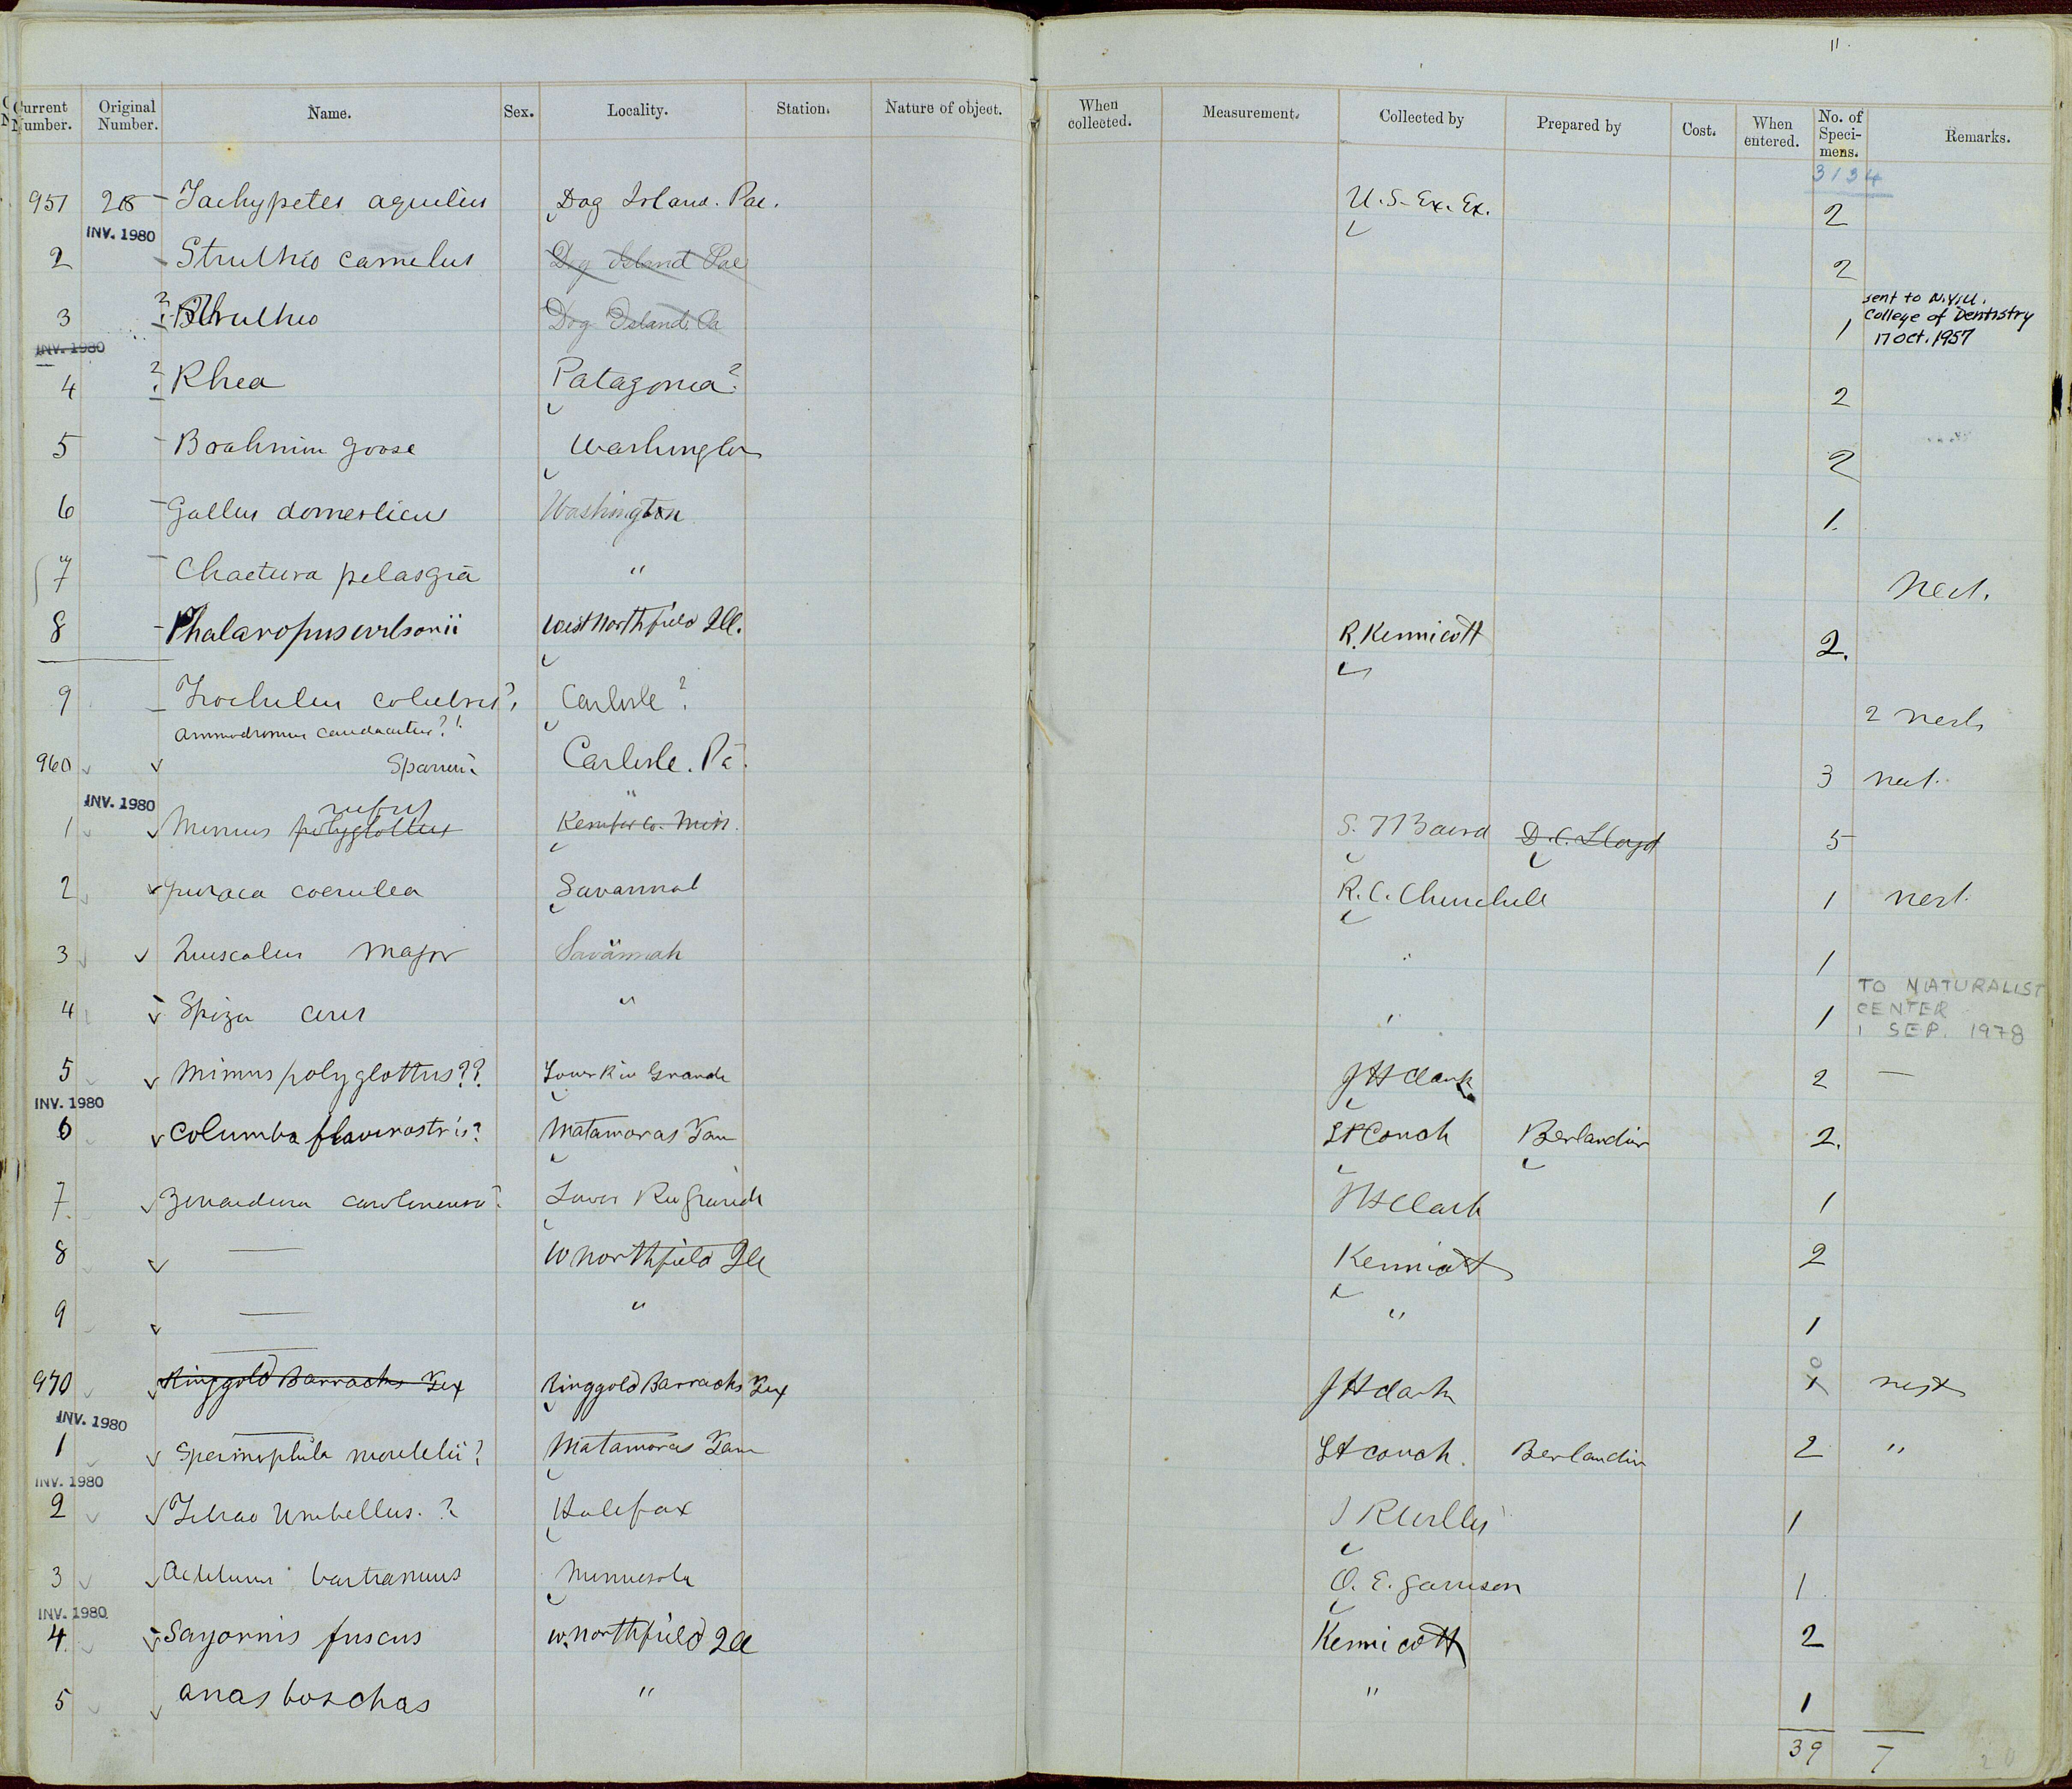 11.
Current Number. Original Number. Name. Sex. Locality. Station. Nature of object. When collected. Measurement. Collected by Prepared by Cost. When entered. No. of Specimens. Remarks.
3134
951 28 Tachypetes aquilus Dog Island. Pac. U.S. Ex. Ex. 2
INV. 1980
2 Struthio camelus Dog Island Pac 2
3 ? Struthio Dog Island Pa 1 sent to N.Y.U. College of Dentistry 17 Oct. 1957
INV. 1980
4 ? Rhea Patagonia? 2
5 Brahmin goose Washington 2
6 Gallus domesticus Washington 1.
7 Chaetura pelasgia " Nest.
8 Phalaropus wilsonii West Northfield Ill. R. Kennicott 2.
9 Trochilus colubris? Carlisle? 2 nests
Ammodromus caudacutus?!
960 Sparrow? Carlisle. Pa. 3 nest.
INV. 1980
rufus "
1 Mimus polyglottus Kemper Co. Miss. S. F Baird D. C. Lloyd 5
2 guiraca coerulea Savannah R. C. Churchill 1 nest.
3 Quiscalus Major Savannah 1
4 Spiza ciris " 1 TO NATURALIST CENTER 1 SEP. 1978
5 Mimus polyglottus?? Lower Rio Grande J H Clark 2 —
INV. 1980
6 Columba flavirostris? Matamoras Tam Lt Couch Berlandier 2.
7. Zenaidura carolinensis? Lower Rio Grande J H Clark 1
8 — W Northfield Ill Kennicott 2
9 — " " 1
970 Ringgold Barracks Tex Ringgold Barracks Tex J H Clark 0 1 nest
INV. 1980
1 Spermophila moreletii? Matamoras Tam Lt Couch. Berlandier 2 "
INV. 1980
2 Tetrao Umbellus. ? Halifax J R Willis 1
3 Actiturus bartramius Minnesota O. E. Garrison 1
INV. 1980
4 Sayornis fuscus W. Northfield Ill Kennicott 2
5 Anas boschas " " 1
39 7